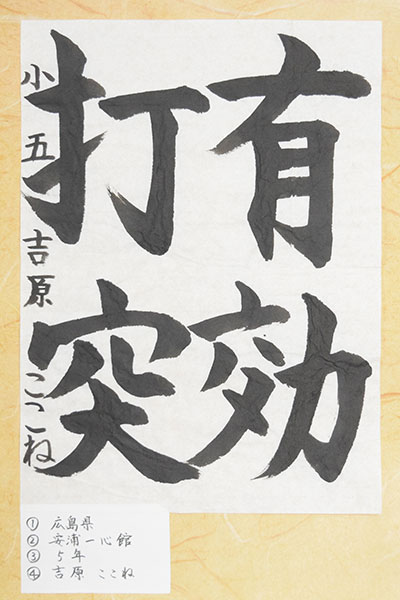 有効
打突
小五 吉原 ここね
① 広島県
② 安浦一心館
③ 5年
④ 吉原 ここね